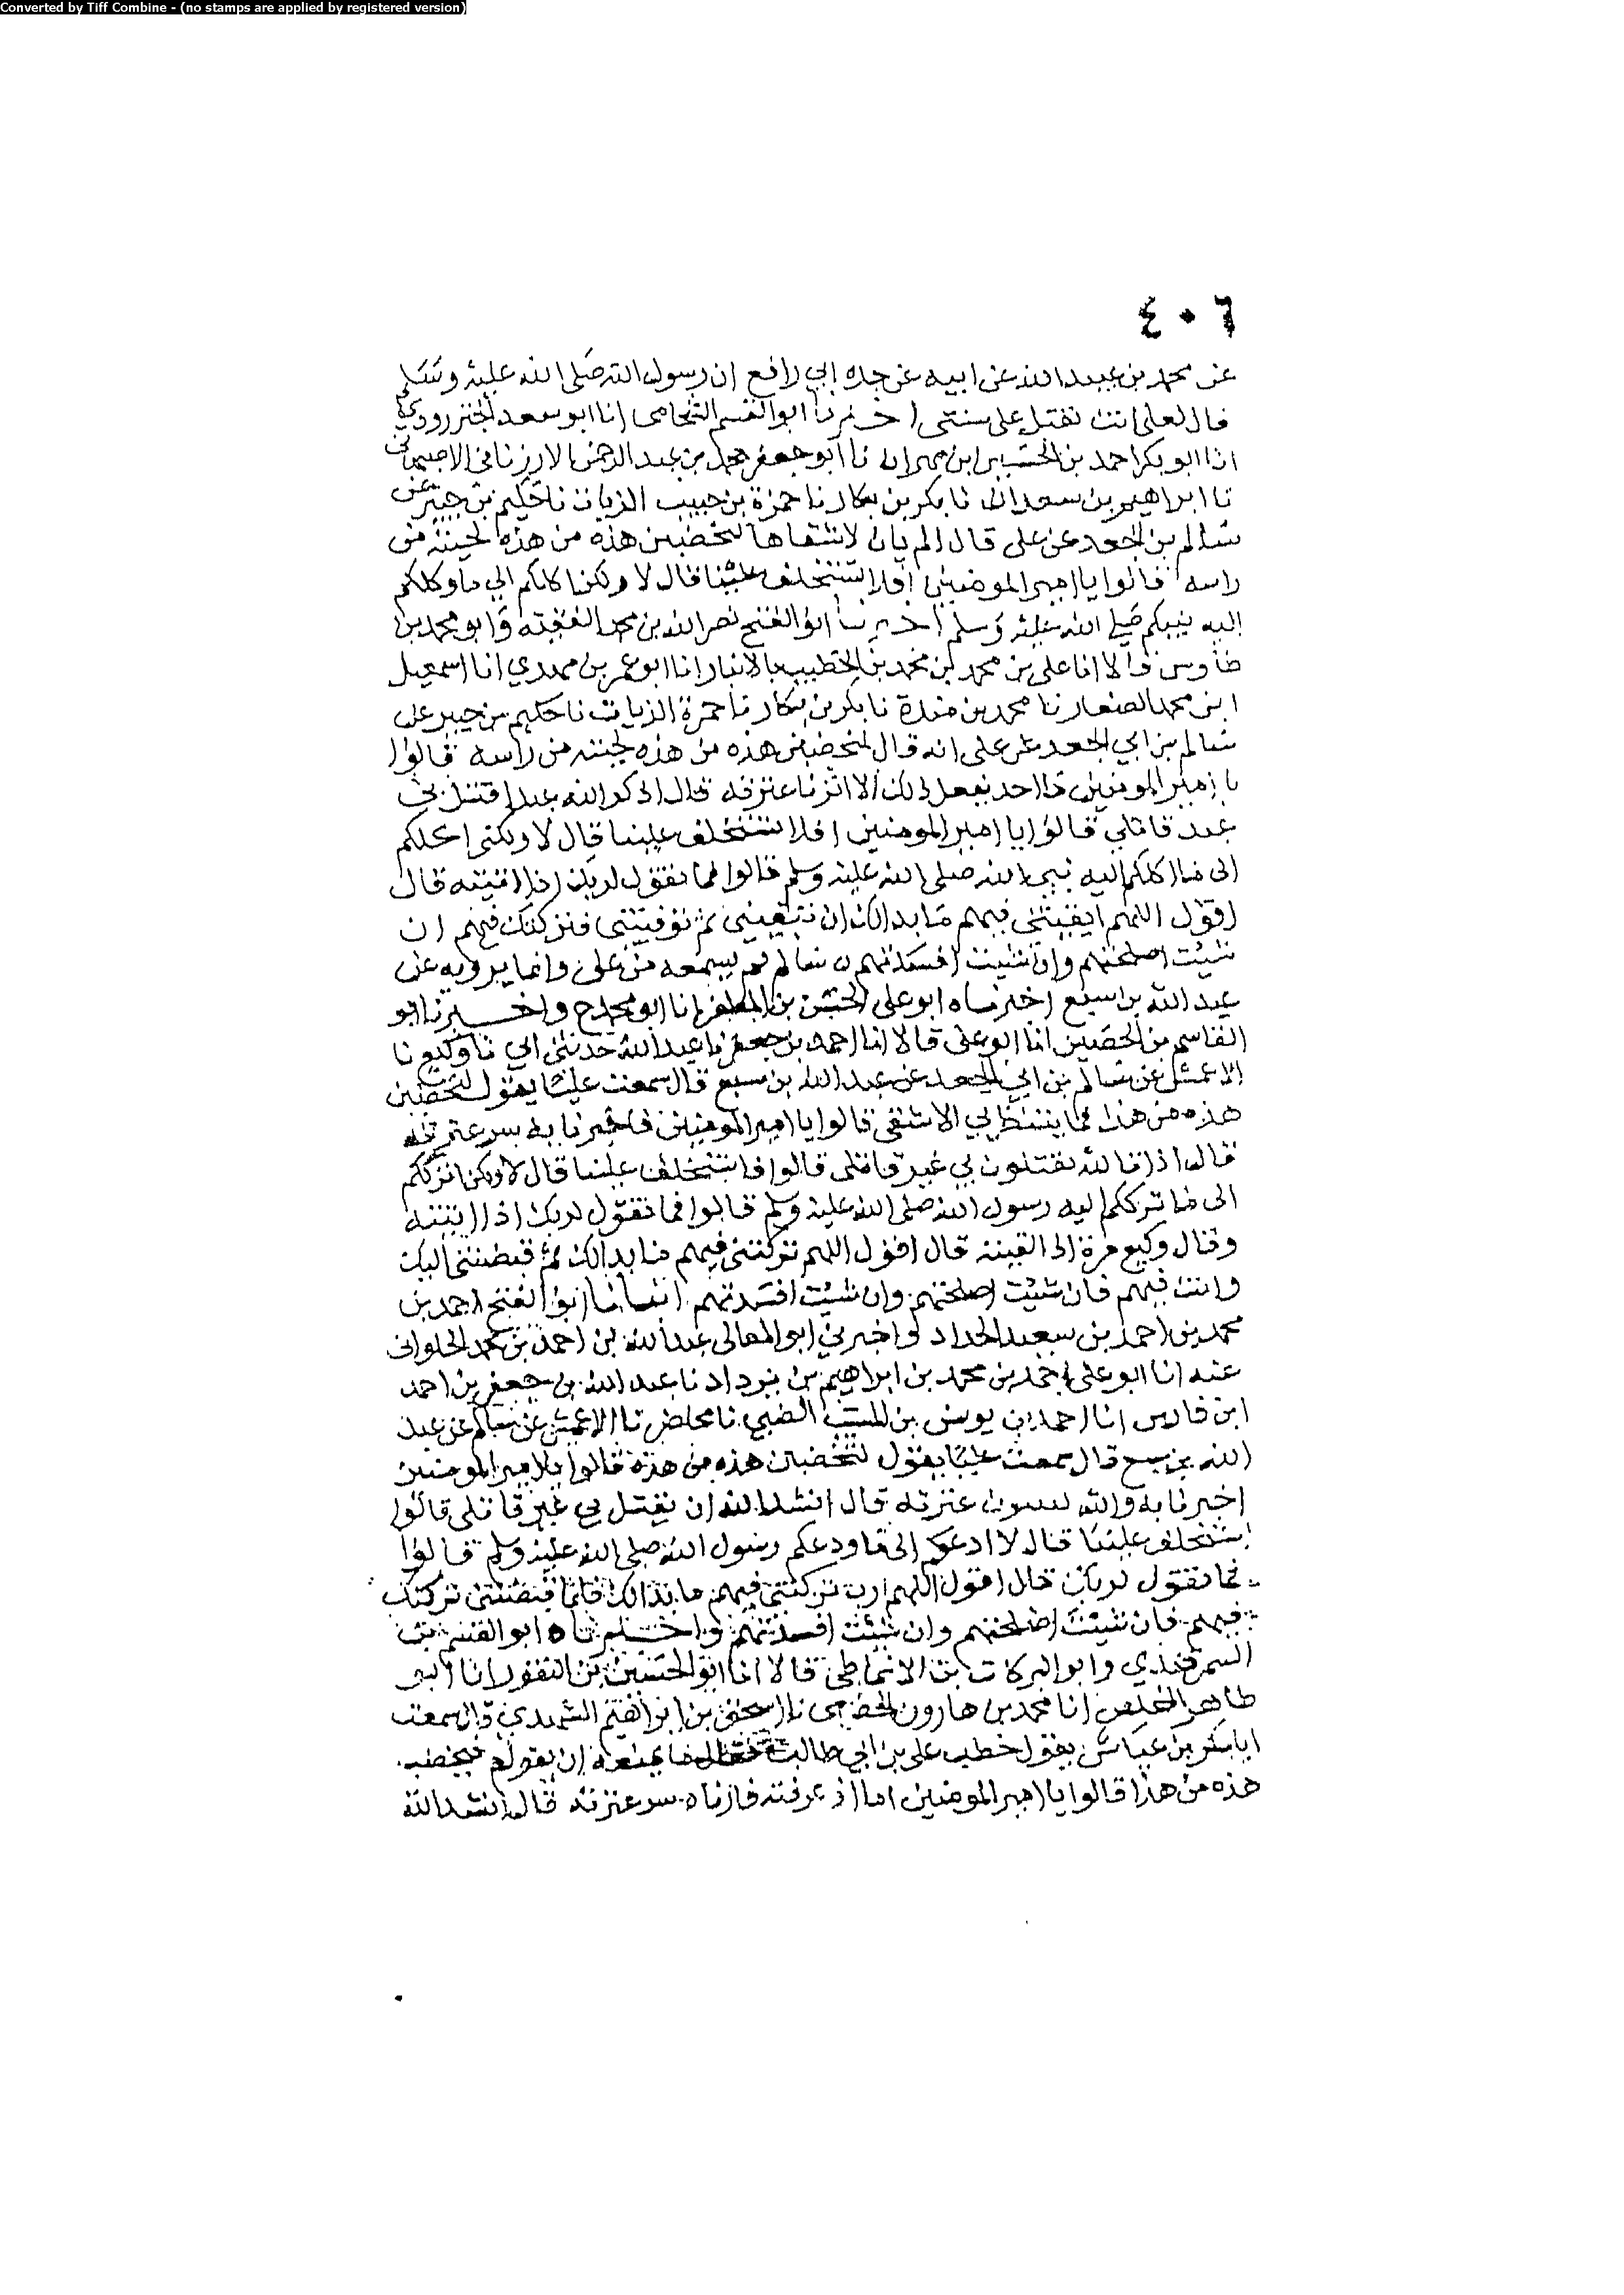 Converted by Tiff Combine - (no stamps are applied by registered version)
٤٠٦
عن محمد بن عبيد الله عن ابيه عن جده ابي رافع ان رسول الله صلى الله عليه وسلم
قال لعلي انت تقتل على سنتي اخبرنا ابو القسم الشحامي انا ابو سعد الجنزرودي
انا ابو بكر احمد بن الحسين ابن مهران نا ابو جعفر محمد بن عبد الرحمن الارزناني الاصبهاني
نا ابراهيم بن سعدان نا بكر بن بكار نا حمزة بن حبيب الزيات نا حكيم بن جبير عن
سالم بن الجعد عن علي قال الم يان لاشقاها لتخضبن هذه من هذه لحيته من
راسه قالوا يا امير المومنين افلا تستخلف علينا قال لا ولكن اكلكم الى ما وكلكم
اليه نبيكم صلى الله عليه وسلم اخبرنا ابو الفتح نصر الله بن محمد الفقيه وابو محمد بن
طاوس قالا انا علي بن محمد بن محمد بن الخطيب بالانبار انا ابو عمر بن مهدي انا اسمعيل
ابن محمد الصفار نا محمد بن مندة نا بكر بن بكار نا حمزة الزيات نا حكيم بن جبير عن
سالم بن ابي الجعد عن علي انه قال لتخضبن هذه من هذه لحيته من راسه قالوا
يا امير المومنين ما احد يفعل ذلك الا ابرنا عترته قال اذكر الله عبدا قتل بي
عبد قاتلي قالوا يا امير المومنين افلا تستخلف علينا قال لا ولكني اكلكم
الى ما اكلكم اليه نبي الله صلى الله عليه وسلم قالوا فما تقول لربك اذا اتيته قال
اقول اللهم ابقيتني فيهم ما بدا لك ان تبقيني ثم توفيتني فتركتك فيهم ان
شئت اصلحتهم وان شئت افسدتهم سالم لم يسمعه من علي وانما يرويه عن
عبد الله بن سبع اخبرناه ابو علي الحسن بن المظفر انا ابو محمد ح واخبرنا ابو
القاسم بن الحصين انا ابو علي قالا انا احمد بن جعفر نا عبد الله حدثني ابي نا وكيع نا
الاعمش عن سالم بن ابي الجعد عن عبد الله بن سبع قال سمعت عليا يقول لتخضبن
هذه من هذا فما ينتظر بي الاشقى قالوا يا امير المومنين فاخبرنا به نبير عترته
قال اذا تالله تقتلون بي غير قاتلي قالوا فاستخلف علينا قال لا ولكن اترككم
الى ما ترككم اليه رسول الله صلى الله عليه وسلم قالوا فما تقول لربك اذا اتيته
وقال وكيع مرة اذا لقيته قال اقول اللهم تركتني فيهم ما بدا لك ثم قبضتني اليك
وانت فيهم فان شئت اصلحتهم وان شئت افسدتهم انبانا ابو الفتح احمد بن
محمد بن احمد بن سعيد الحداد واخبرني ابو المعالي عبد الله بن احمد بن محمد الحلواني
عنه انا ابو علي احمد بن محمد بن ابراهيم بن يزداد نا عبد الله بن جعفر بن احمد
ابن فارس انا احمد بن يونس بن المسيب الضبي نا محاضر نا الاعمش عن سالم عن عبد
الله بن سبع قال سمعت عليا يقول لتخضبن هذه من هذه قالوا يا امير المومنين
اخبرنا به والله لنبيرن عترته قال انشد الله ان يقتل بي غير قاتلي قالوا
استخلف علينا قال لا ادعكم الى ما ودعكم رسول الله صلى الله عليه وسلم قالوا
فما تقول لربك قال اقول اللهم رب تركتني فيهم ما بدا لك فلما قبضتني تركتك
فيهم فان شئت اصلحتهم وان شئت افسدتهم واخبرناه ابو القسم بن
السمرقندي وابو البركات بن الانماطي قالا انا ابو الحسين بن النقور انا ابو
طاهر المخلص انا محمد بن هارون الحضرمي نا اسحق بن ابراهيم الشهيدي قال سمعت
ابا بكر بن عياش يقول خطب علي بن ابي طالب فقال ما يمنعه ان يقوم فيخضب
هذه من هذا قالوا يا امير المومنين اما اذ عرفته فارناه نبير عترته قال انشد الله